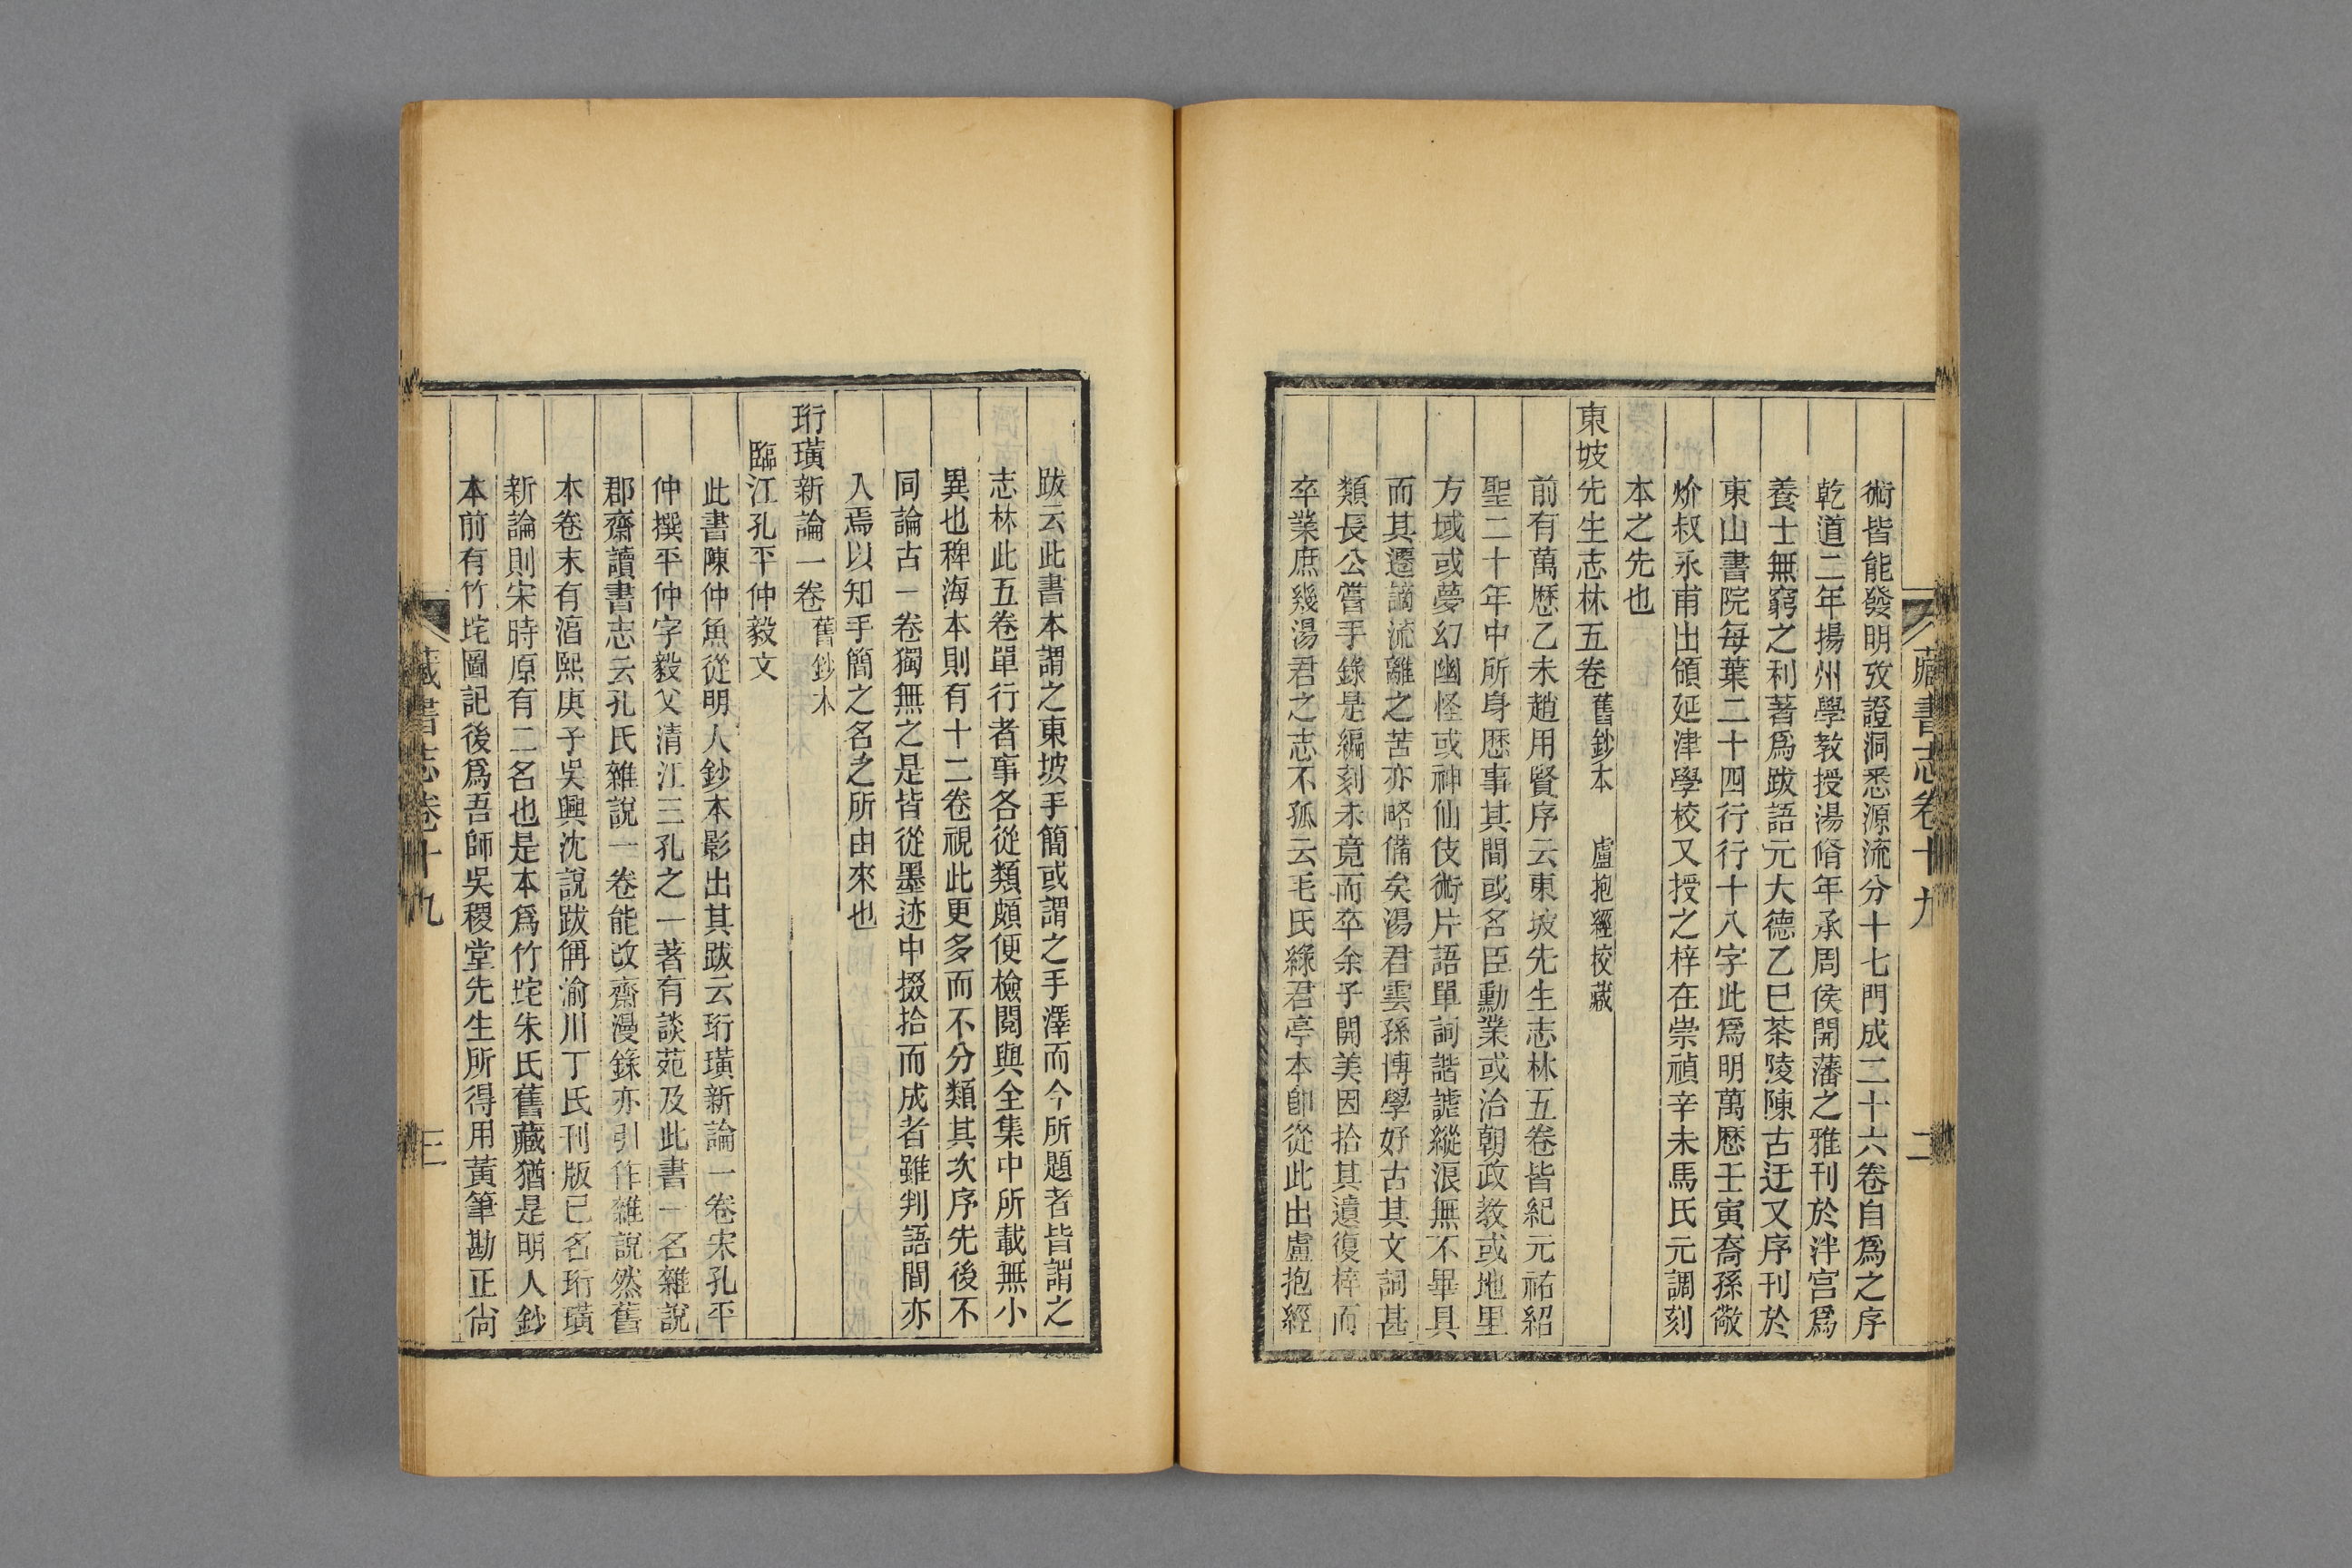 藏書志卷十九 二
術皆能發明攷證洞悉源流分十七門成二十六卷自爲之序
乾道二年揚州學教授湯脩年承周侯開藩之雅刊於泮宫爲
養士無窮之利著爲跋語元大德乙巳茶陵陳古迂又序刊於
東山書院每葉二十四行行十八字此爲明萬歷壬寅裔孫敞
炌叔永甫出領延津學校又授之梓在崇禎辛未馬氏元調刻
本之先也
東坡先生志林五卷 舊鈔本 盧抱經校藏
前有萬歷乙未趙用賢序云東坡先生志林五卷皆紀元祐紹
聖二十年中所身歷事其間或名臣勳業或治朝政教或地里
方域或夢幻幽怪或神仙伎術片語單詞諧謔縱浪無不畢具
而其遷謫流離之苦亦略備矣湯君雲孫博學好古其文詞甚
類長公嘗手錄是編刻未竟而卒余子開美因拾其遺復梓而
卒業庶幾湯君之志不孤云毛氏綠君亭本卽從此出盧抱經
跋云此書本謂之東坡手簡或謂之手澤而今所題者皆謂之
志林此五卷單行者事各從類頗便檢閱與全集中所載無小
異也稗海本則有十二卷視此更多而不分類其次序先後不
同論古一卷獨無之是皆從墨迹中掇拾而成者雖判語間亦
入焉以知手簡之名之所由來也
珩璜新論一卷 舊鈔本
臨江孔平仲毅文
此書陳仲魚從明人鈔本影出其跋云珩璜新論一卷宋孔平
仲撰平仲字毅父清江三孔之一著有談苑及此書一名雜說
郡齋讀書志云孔氏雜說一卷能改齋漫錄亦引作雜說然舊
本卷末有湻熙庚子吳興沈說跋稱渝川丁氏刊版已名珩璜
新論則宋時原有二名也是本爲竹垞朱氏舊藏猶是明人鈔
本前有竹垞圖記後爲吾師吳稷堂先生所得用黃筆勘正尙
藏書志卷十九 三